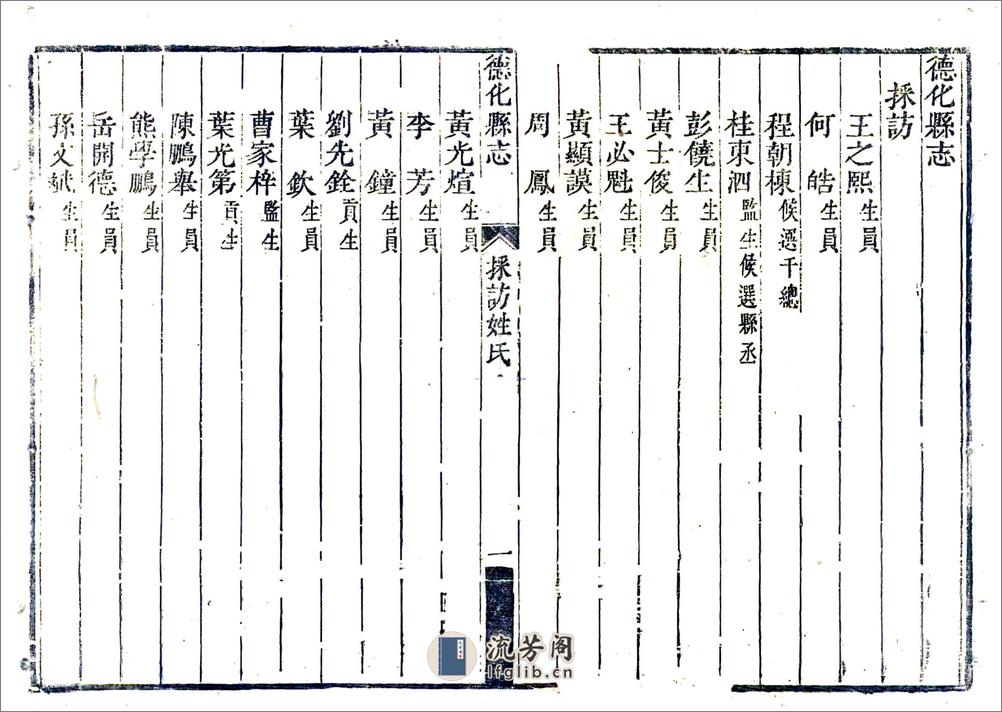 德化縣志
採訪
王之熙 生員
何 皓 生員
程朝棟 候選千總
桂東泗 監生候選縣丞
彭饒生 生員
黃士俊 生員
王必魁 生員
黃顯謨 生員
周 鳳 生員
德化縣志 採訪姓氏 一
黃光煊 生員
李 芳 生員
黃 鐘 生員
劉先銓 貢生
葉 欽 生員
曹家梓 監生
葉光第 貢生
陳鵬舉 生員
熊學鵬 生員
岳開德 生員
孫文斌 生員
流芳阁
lfglib.cn